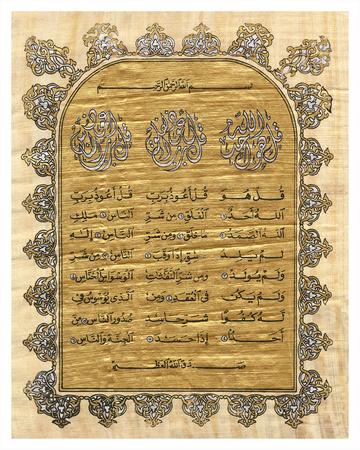 بسم الله الرحمن الرحيم
قل هو الله أحد
قل أعوذ برب الفلق
قل أعوذ برب الناس
قُلْ هُوَ
اللَّهُ أَحَدٌ
اللَّهُ الصَّمَدُ
لَمْ يَلِدْ
وَلَمْ يُولَدْ
وَلَمْ يَكُن
لَّهُ كُفُوًا
أَحَدٌ
قُلْ أَعُوذُ بِرَبِّ
الْفَلَقِ مِن شَرِّ
مَا خَلَقَ وَمِن شَرِّ
غَاسِقٍ إِذَا وَقَبَ
وَمِن شَرِّ النَّفَّاثَاتِ
فِي الْعُقَدِ وَمِن
شَرِّ حَاسِدٍ
إِذَا حَسَدَ
قُلْ أَعُوذُ بِرَبِّ
النَّاسِ مَلِكِ
النَّاسِ إِلَهِ
النَّاسِ مِن شَرِّ
الْوَسْوَاسِ الْخَنَّاسِ
الَّذِي يُوَسْوِسُ فِي
صُدُورِ النَّاسِ مِنَ
الْجِنَّةِ وَالنَّاسِ
صدق الله العظيم